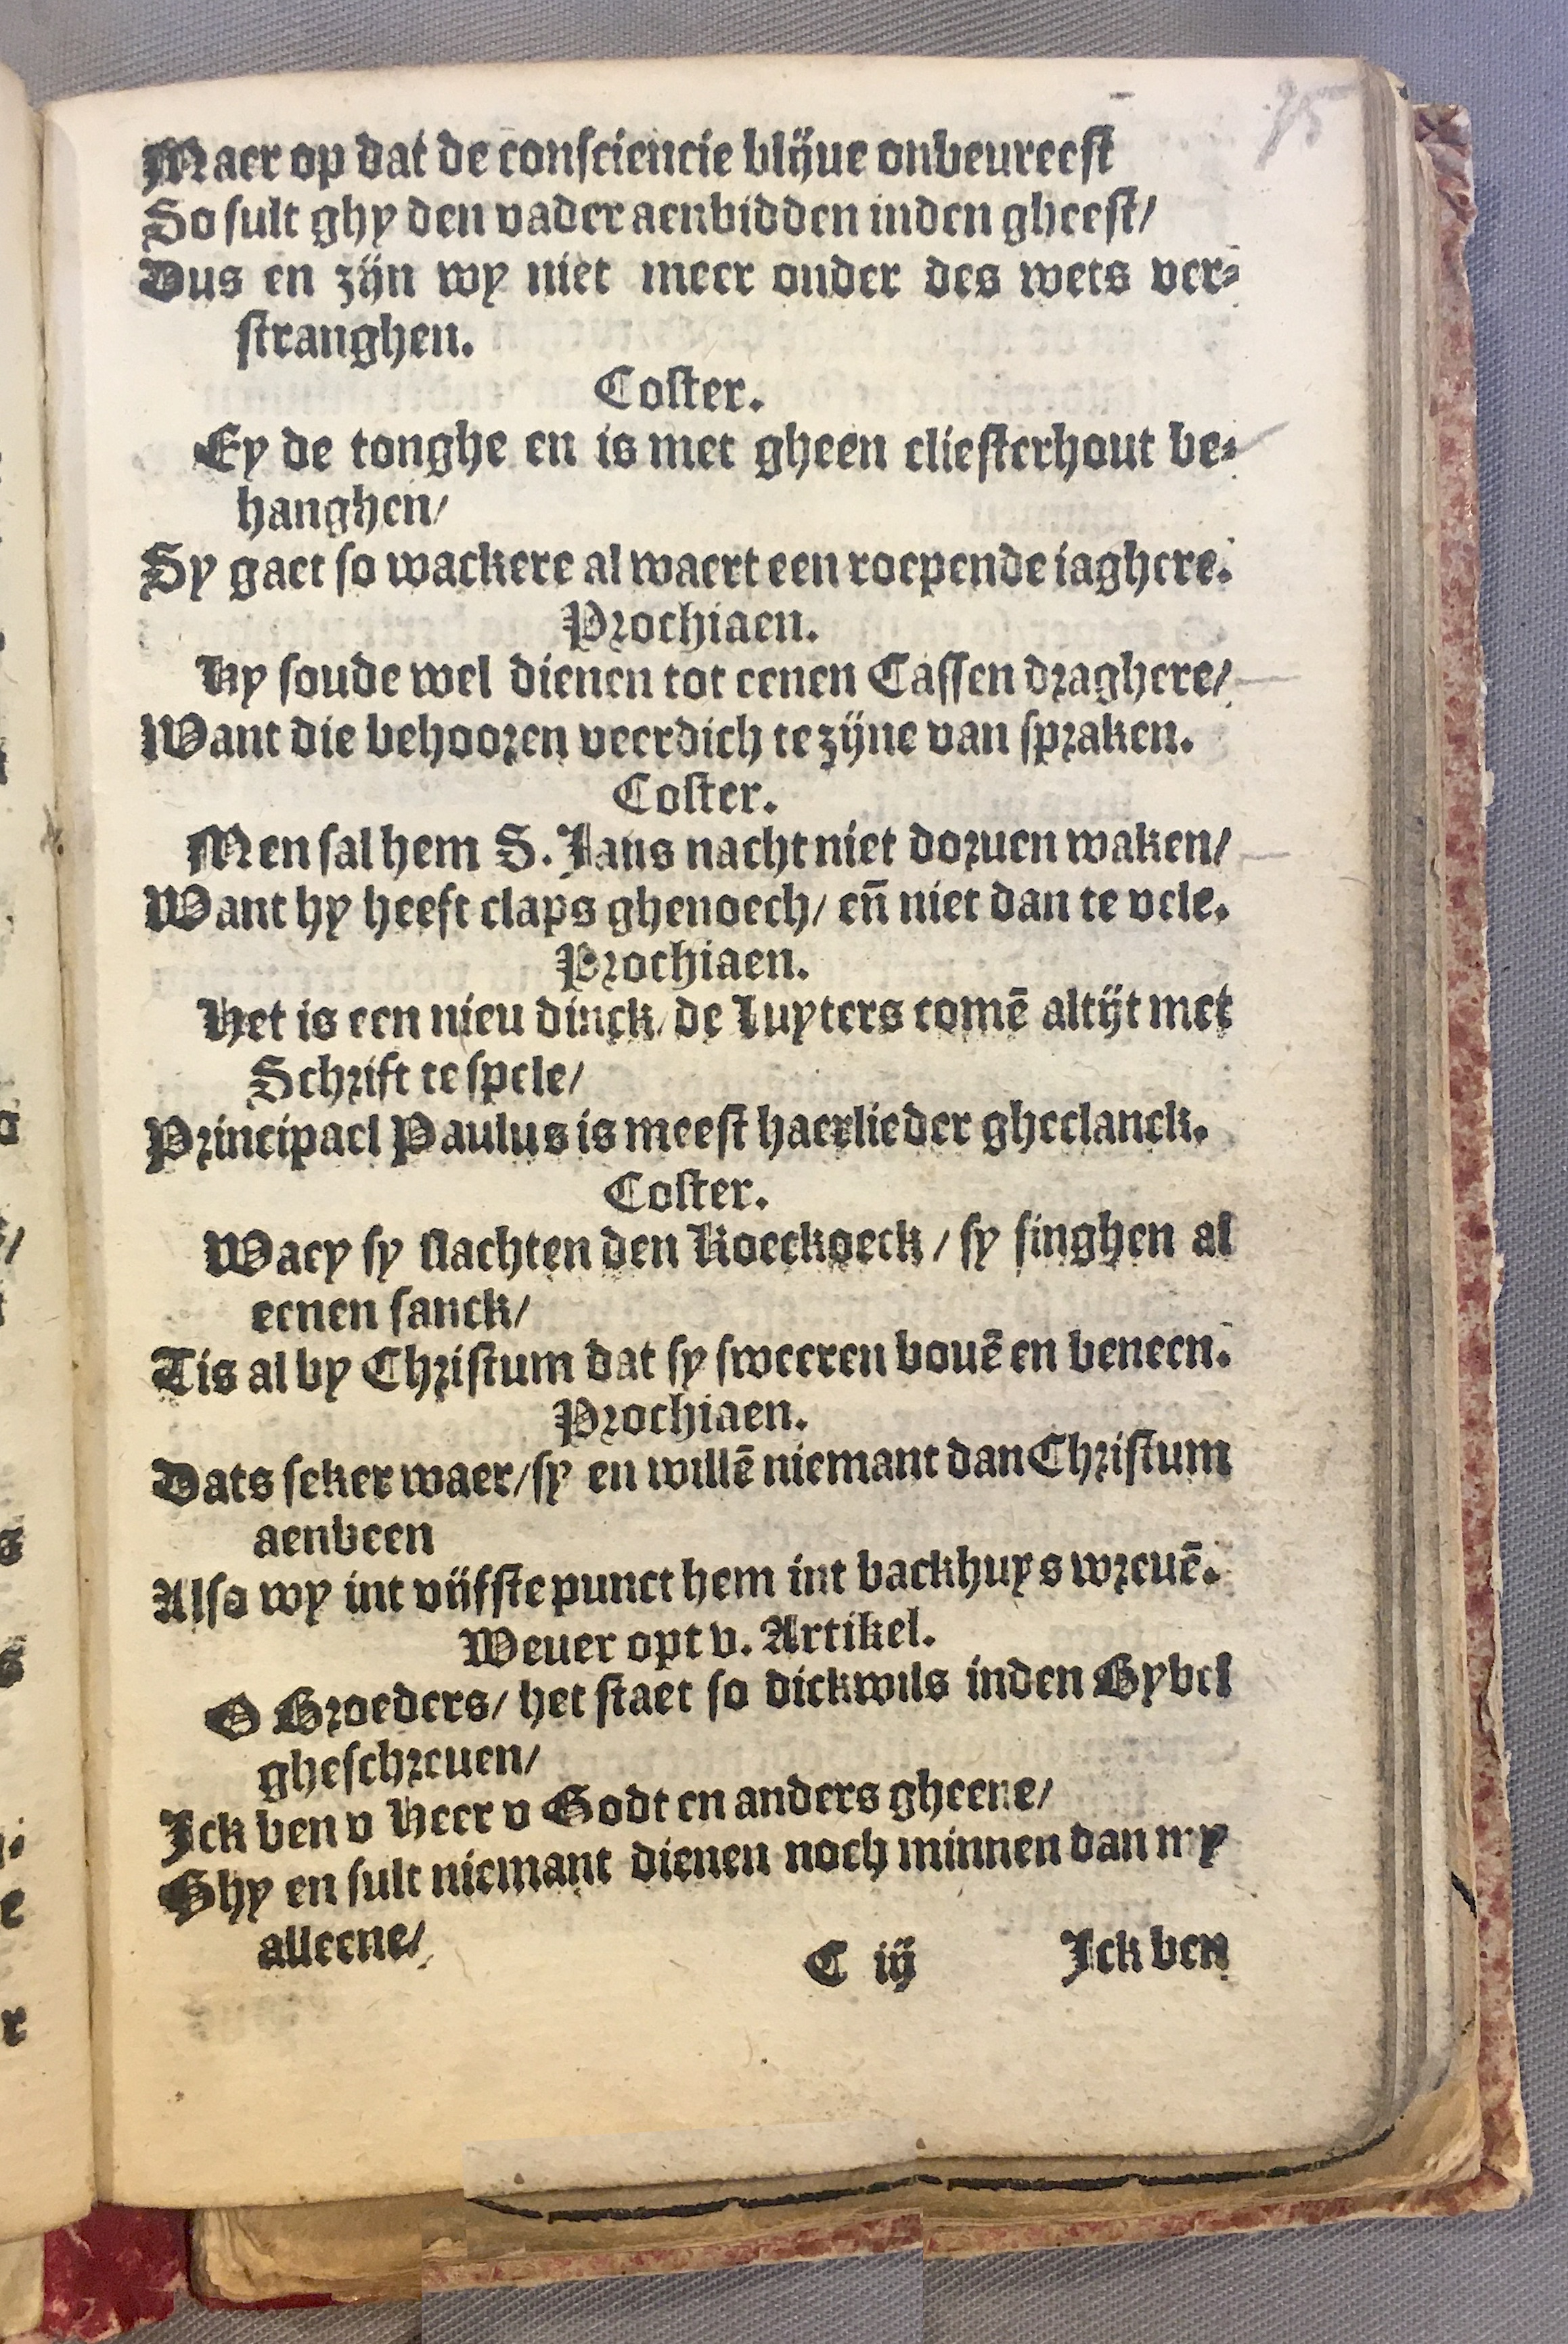 35
Maer op dat de consciencie blijue onbeureest
So sult ghy den vader aenbidden inden gheest/
Dus en zijn wy niet meer onder des wets ver⸗
stranghen.
Coster.
Ey de tonghe en is met gheen cliesterhout be⸗
hanghen/
Sy gaet so wackere al waert een roepende iaghere.
Prochiaen.
Hy soude wel dienen tot eenen Cassen draghere/
Want die behooren veerdich te zijne van spraken.
Coster.
Men sal hem S. Jans nacht niet doruen waken/
Want hy heeft claps ghenoech/ eñ niet dan te vele.
Prochiaen.
Het is een nieu dinck/ de Luyters comē altijt met
Schrift te spele/
Principael Paulus is meest haerlieder gheclanck.
Coster.
Waey sy slachten den Koeckoeck / sy singhen al
eenen sanck/
Tis al by Christum dat sy sweeren bouē en beneen.
Prochiaen.
Dats seker waer/sy en willē niemant dan Christum
aenbeen
Also wy int vijfste punct hem int backhuys wreuē.
Weuer opt v. Artikel.
O Broeders/ het staet so dickwils inden Bybel
gheschreuen/
Ick ben v Heer v Godt en anders gheene/
Ghy en sult niemant dienen noch minnen dan my
alleene/
C iij Ick ben